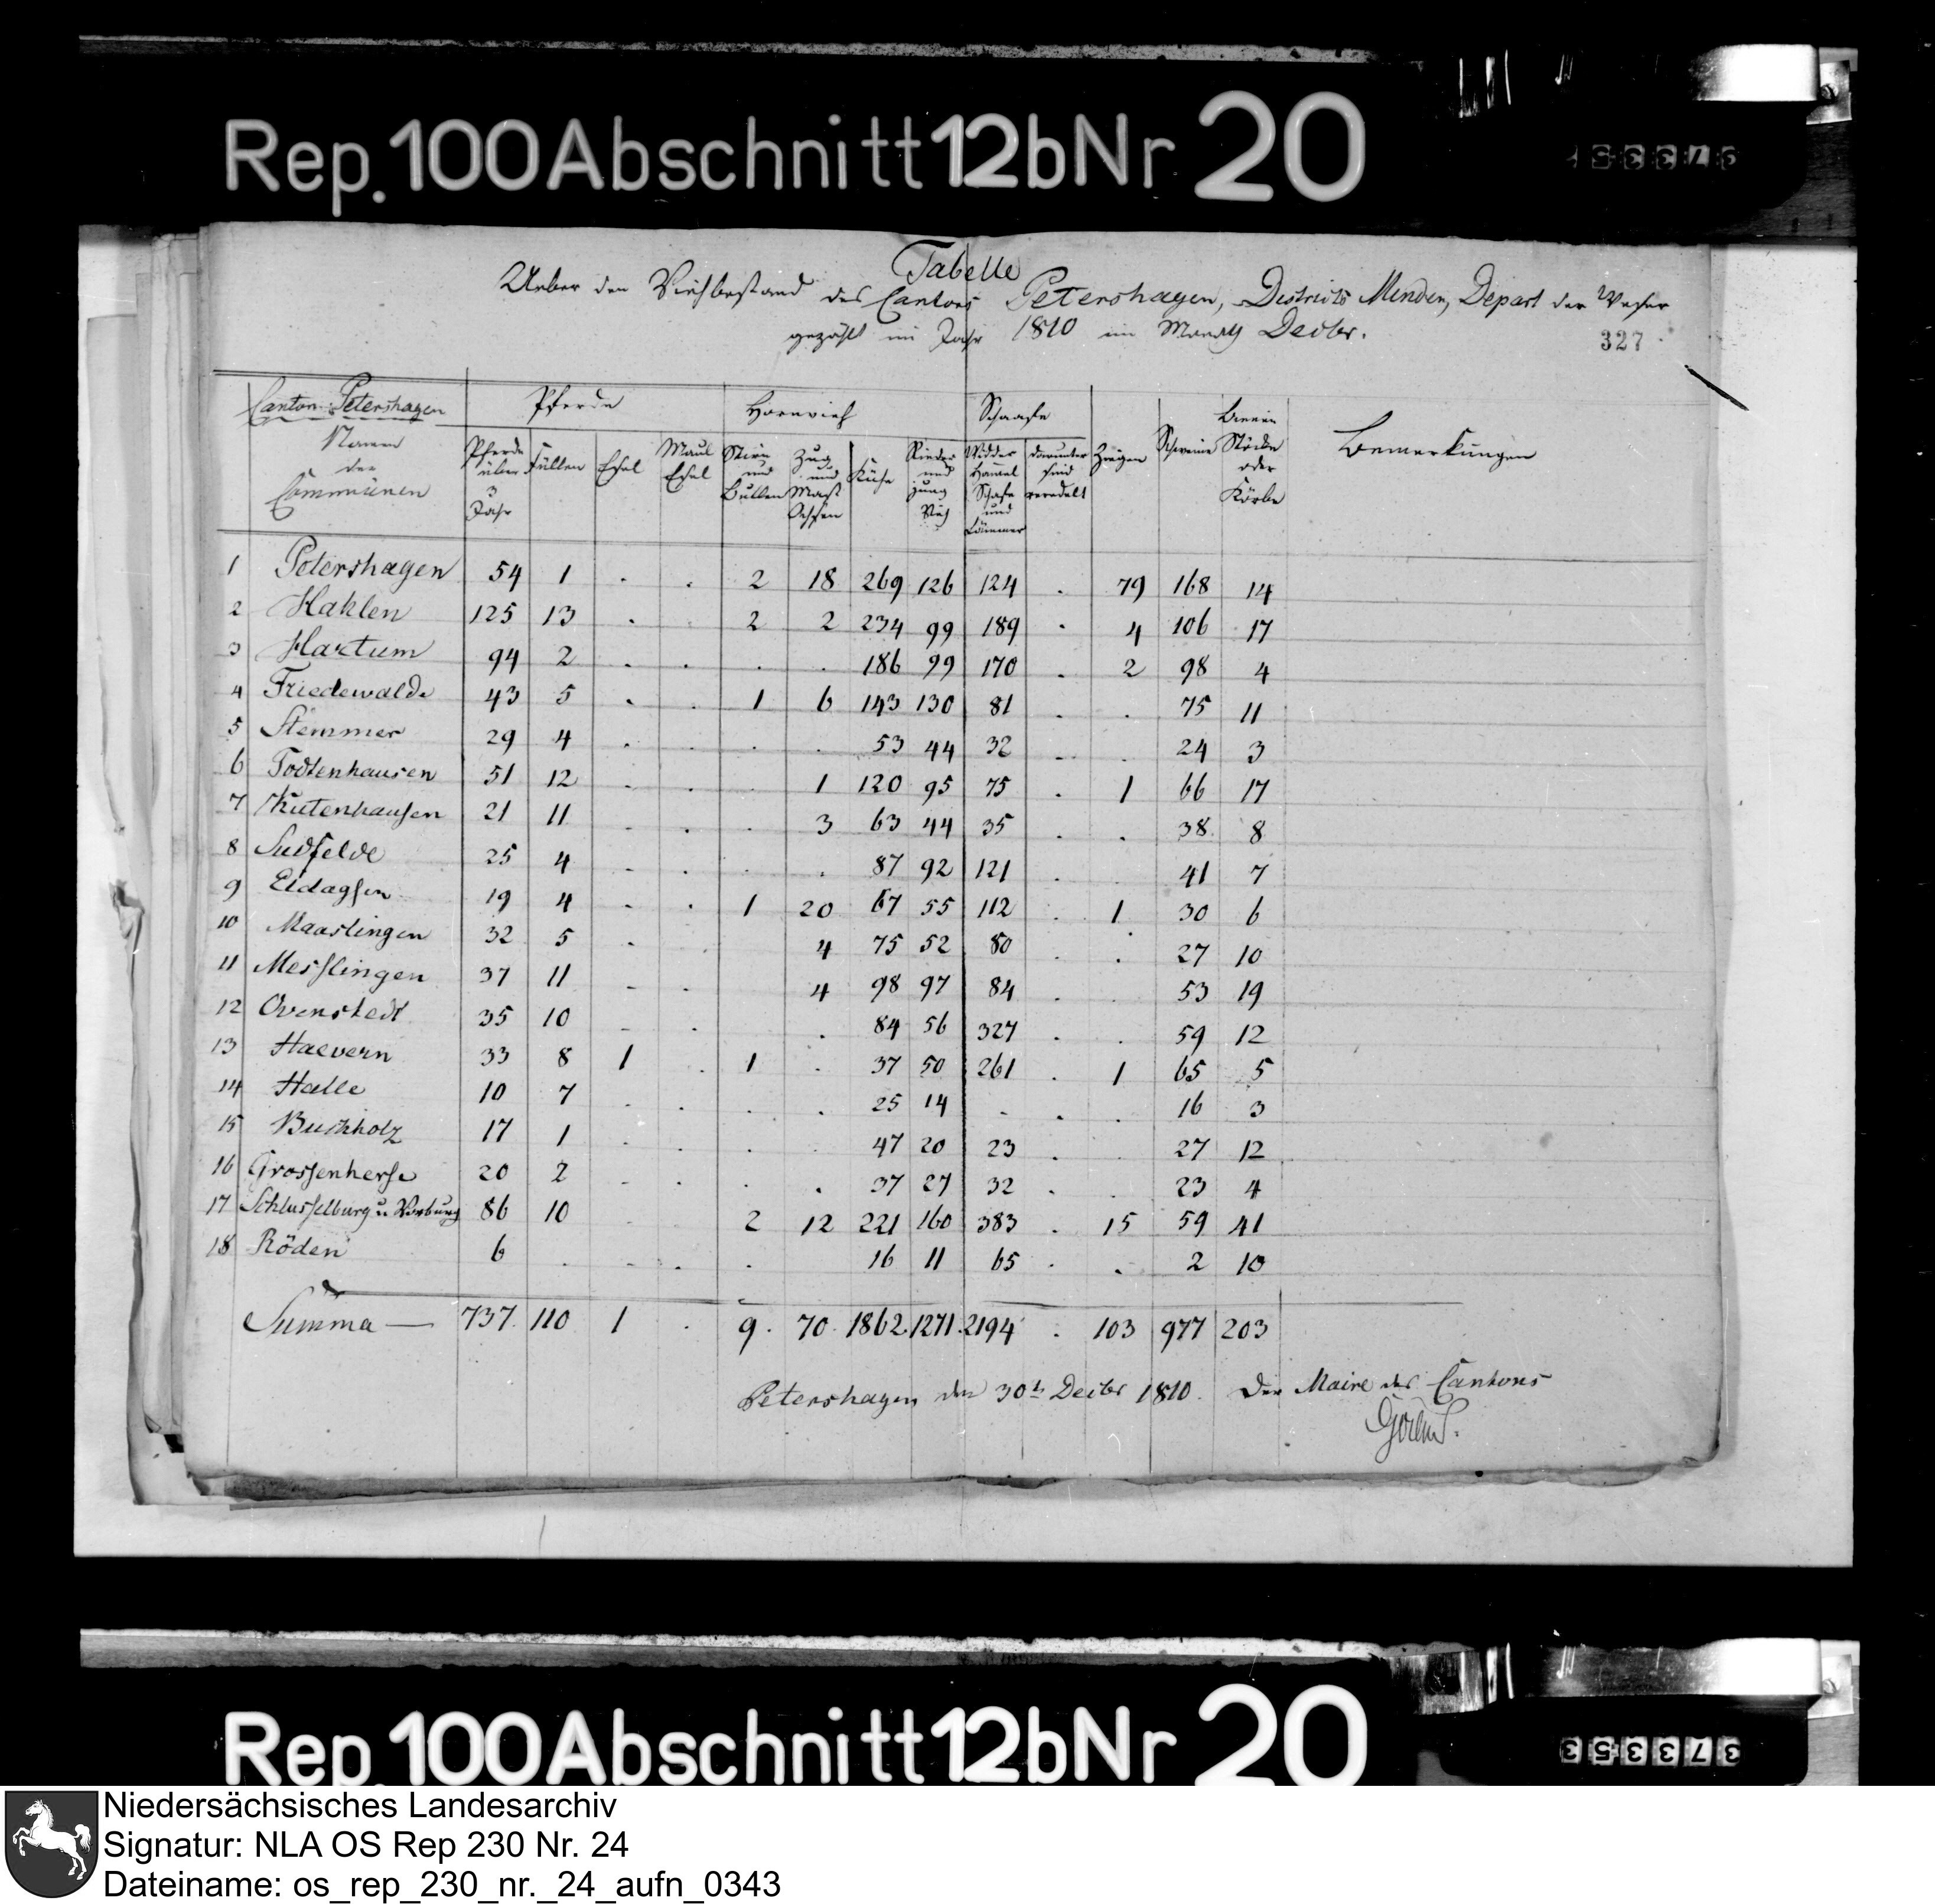 Rep. 100 Abschnitt 12b Nr 20
Tabelle
Ueber den Viehbestand des Cantons Petershagen, Districts Minden, Depart der Weser
gezählt im Jahr 1810 im Monath Decbr.
327
Canton Petershagen
Namen der Communen
Pferde
Pferde über 3 Jahr
Füllen
Esel
Maul Esel
Hornvieh
Stiere und Bullen
Zug und Mast Ochsen
Kühe
Rinder und jung Vieh
Schaafe
Widder Hamel Schafe und Lämmer
darunter sind veredelt
Ziegen
Schweine
Bienen Stöcke oder Körbe
Bemerkungen
1 Petershagen 54 1 . . 2 18 269 126 124 . 79 168 14
2 Hahlen 125 13 . 2 2 234 99 189 . 4 106 17
3 Hartum 94 2 . . . . 186 99 170 . 2 98 4
4 Friedewalde 43 5 . . 1 6 143 130 81 . . 75 11
5 Stemmer 29 4 . . . . 53 44 32 . . 24 3
6 Todtenhausen 51 12 . . . 1 120 95 75 . 1 66 17
7 Kutenhausen 21 11 . . . 3 63 44 35 . . 38 8
8 Sudfelde 25 4 . . . . 87 92 121 . . 41 7
9 Eldagsen 19 4 . . 1 20 67 55 112 . 1 30 6
10 Maaslingen 32 5 . 4 75 52 80 . . 27 10
11 Messlingen 37 11 . . 4 98 97 84 . . 53 19
12 Ovenstedt 35 10 . . . 84 56 327 . . 59 12
13 Haevern 33 8 1 . 1 . 37 50 261 . 1 65 5
14 Halle 10 7 . . . . 25 14 . . . 16 3
15 Buchholz 17 1 . . . . 47 20 23 . . 27 12
16 Grossenherse 20 2 . . . . 37 27 32 . . 23 4
17 Schlusselburg u. Vorburg 86 10 . 2 12 221 160 383 . 15 59 41
18 Röden 6 . . . . 16 11 65 . . 2 10
Summa — 737 110 1 . 9. 70. 1862. 1271. 2194 . 103 977 203
Petershagen den 30t Decbr 1810. Der Maire des Cantons
Rep. 100 Abschnitt 12b Nr 20
373353
Niedersächsisches Landesarchiv
Signatur: NLA OS Rep 230 Nr. 24
Dateiname: os_rep_230_nr._24_aufn_0343